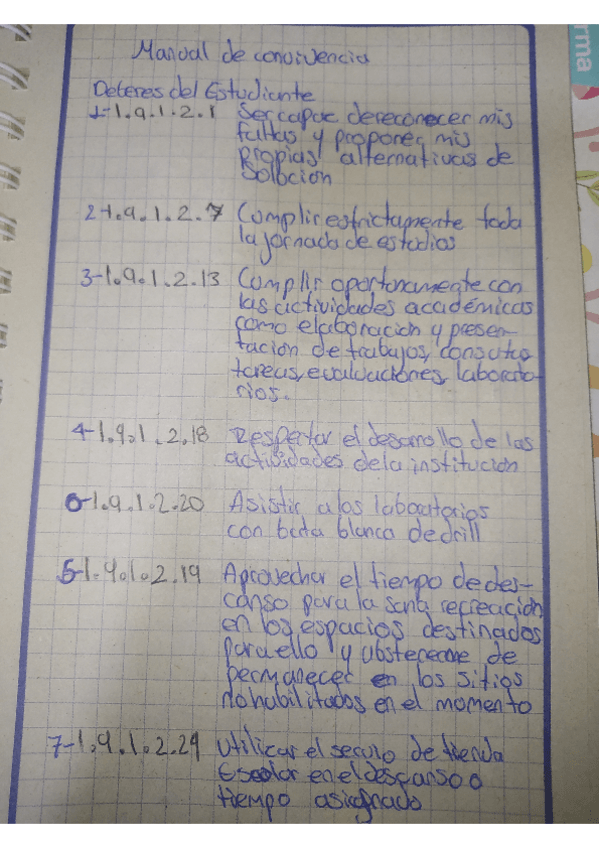 rma
Manual de convivencia
Deberes del Estudiante
1-1.9.1.2.1 Ser capac dereconecer mis
faltas y proponer mis
propias alternativas de
Solocion
2-1.9.1.2.7 Complir estrictamente toda
la jornada de estudios
3-1.9.1.2.13 Complir oportonamente con
las actividades académicas
como elaboracion y presen-
tación de trabajos, consultas
tareas, evaluaciones, laborato-
rios.
4-1.9.1.2.18 Respertar el desarrollo de las
actividades dela institución
6-1.9.1.2.20 Asistir a los laboratorios
con bata blanca de drill
5-1.9.1.2.19 Aprovechar el tiempo de des-
canso para la sana recreación
en los espacios destinados
para ello y abstenerme de
permanecer en los sitios
no habilitados en el momento
7-1.9.1.2.29 Utilizar el seculo de tienda
Escolar en el descanso o
tiempo asignado